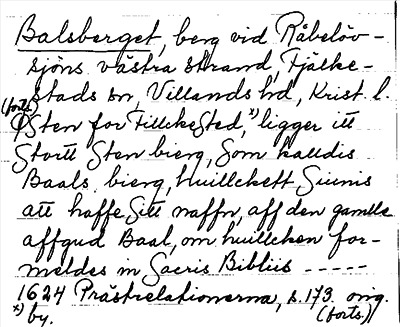 Balsberget, berg vid Råbelöv-
sjöns västra strand, Fjälke-
stads sn, Villands hd, Krist. l.
(forts.)
Østen for Fillkested,ˣ⁾ ligger itt
stortt Sten bierg, Som kalldis
Baals bierg, huillckett Siunis
att haffe Sitt naffn, aff den gamlle
affgud Baal, om huillcken for-
meldes in Sacris Bibliis -----
1624 Prästrelationerna, s. 173. orig.
ˣ⁾ by. (forts.)